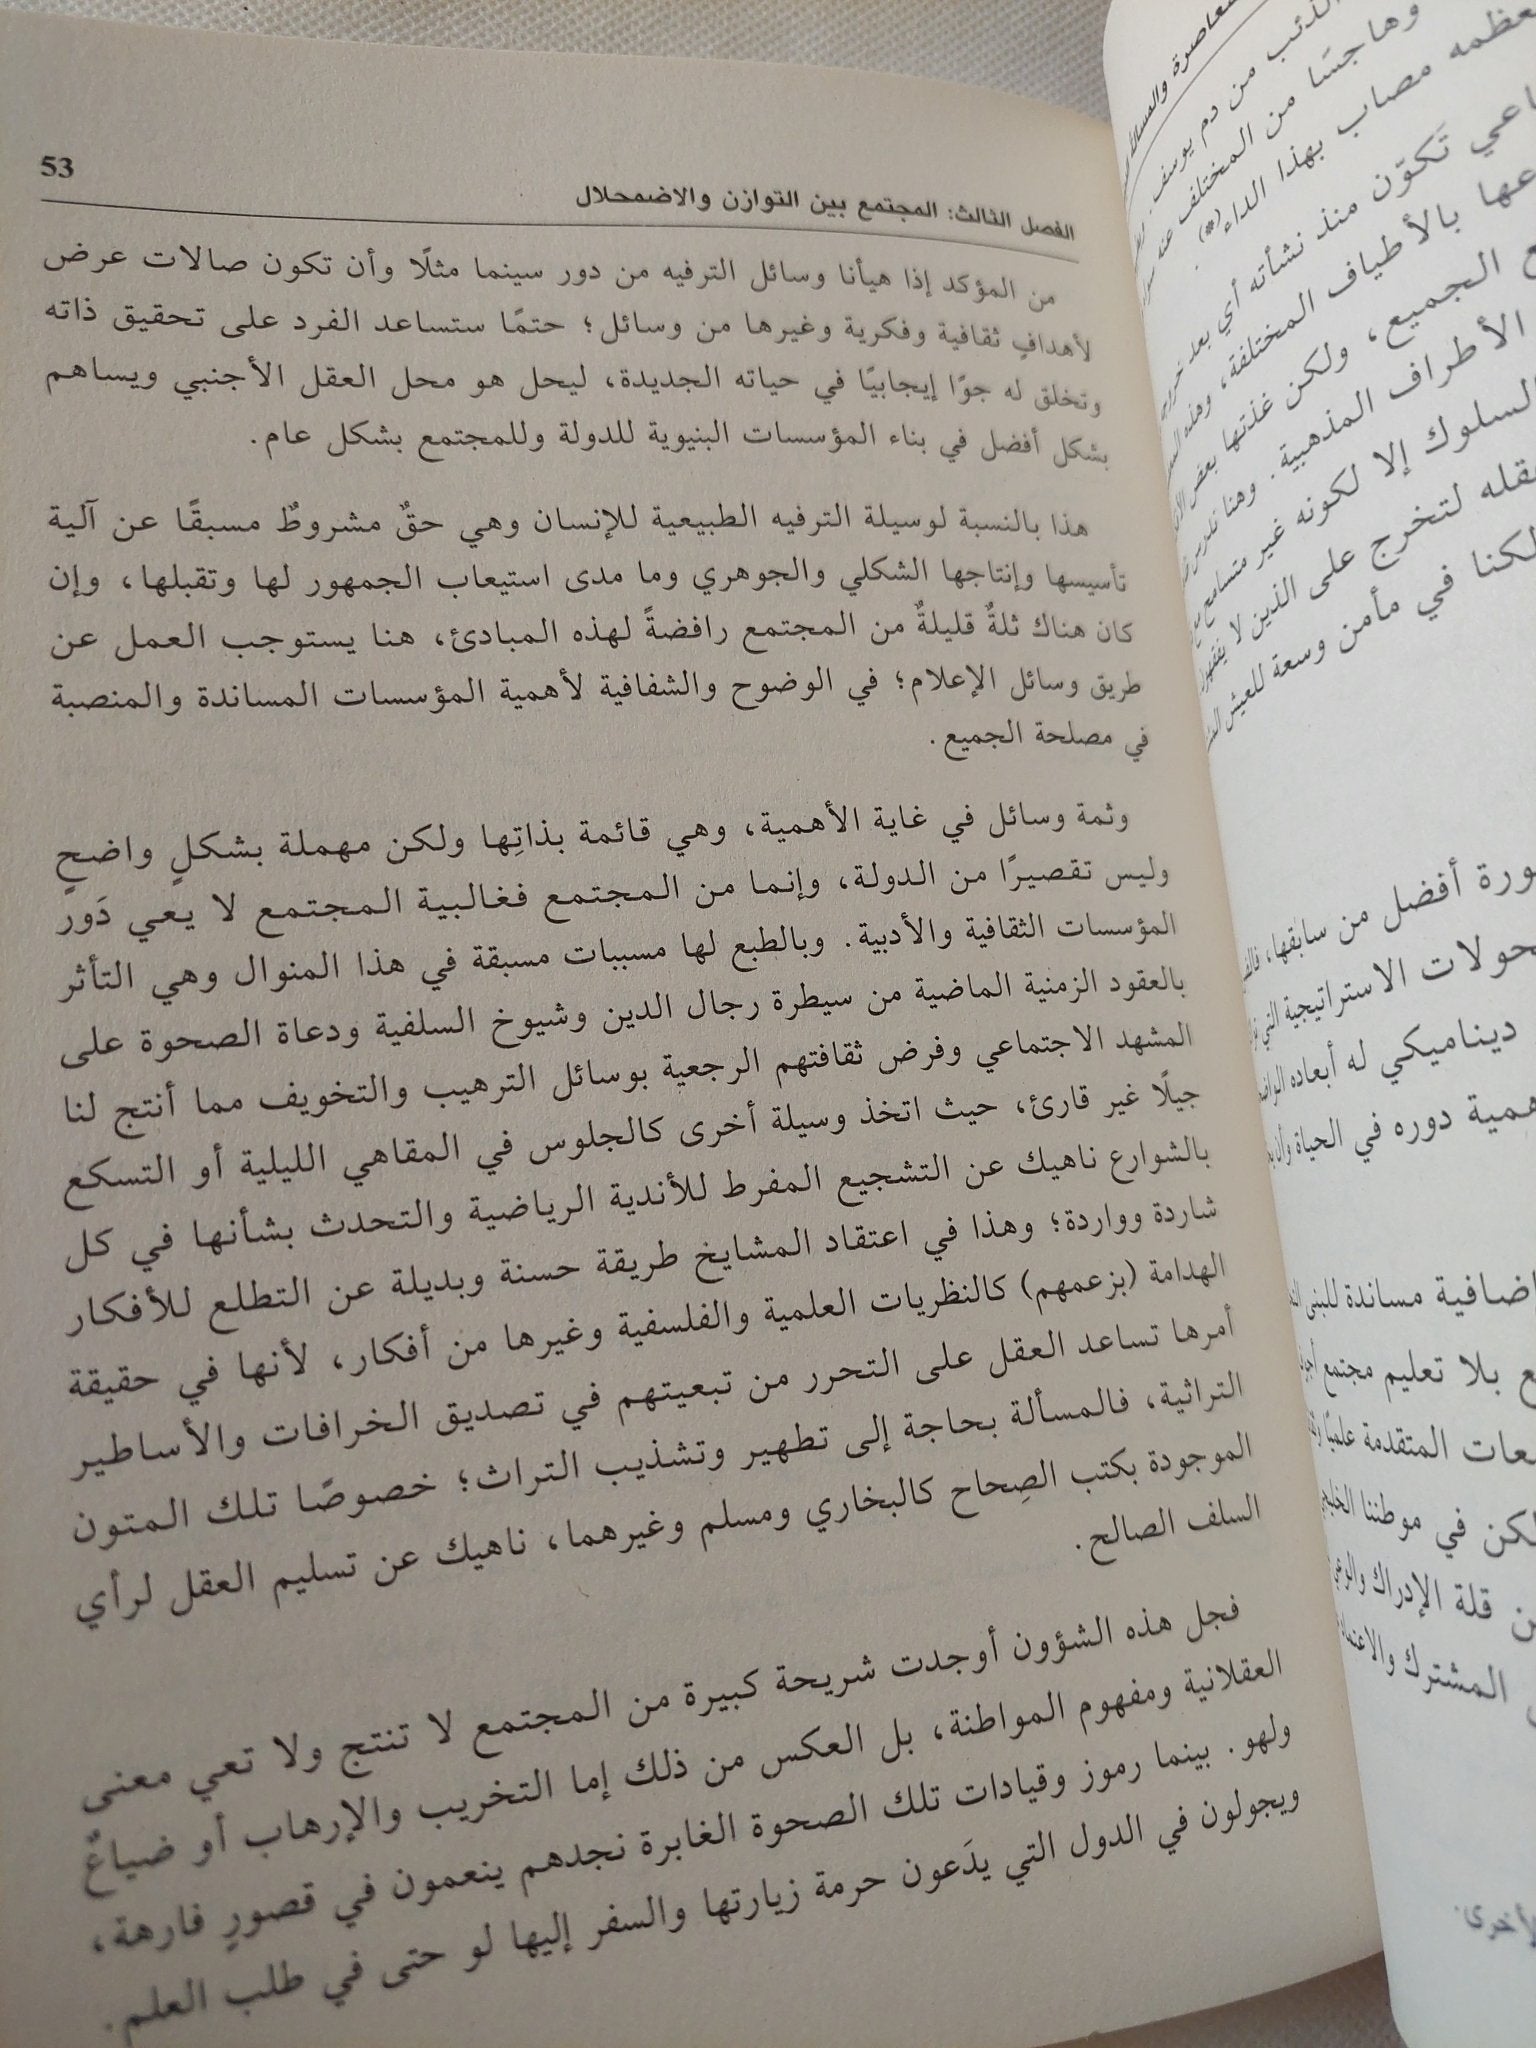 53
الفصل الثالث: المجتمع بين التوازن والاضمحلال
من المؤكد إذا هيأنا وسائل الترفيه من دور سينما مثلًا وأن تكون صالات عرض
لأهدافٍ ثقافية وفكرية وغيرها من وسائل؛ حتمًا ستساعد الفرد على تحقيق ذاته
وتخلق له جوًا إيجابيًا في حياته الجديدة، ليحل هو محل العقل الأجنبي ويساهم
بشكل أفضل في بناء المؤسسات البنيوية للدولة وللمجتمع بشكل عام.
هذا بالنسبة لوسيلة الترفيه الطبيعية للإنسان وهي حقٌ مشروطٌ مسبقًا عن آلية
تأسيسها وإنتاجها الشكلي والجوهري وما مدى استيعاب الجمهور لها وتقبلها، وإن
كان هناك ثلةٌ قليلةٌ من المجتمع رافضةً لهذه المبادئ، هنا يستوجب العمل عن
طريق وسائل الإعلام؛ في الوضوح والشفافية لأهمية المؤسسات المساندة والمنصبة
في مصلحة الجميع.
وثمة وسائل في غاية الأهمية، وهي قائمة بذاتِها ولكن مهملة بشكلٍ واضحٍ
وليس تقصيرًا من الدولة، وإنما من المجتمع فغالبية المجتمع لا يعي دَور
المؤسسات الثقافية والأدبية. وبالطبع لها مسببات مسبقة في هذا المنوال وهي التأثر
بالعقود الزمنية الماضية من سيطرة رجال الدين وشيوخ السلفية ودعاة الصحوة على
المشهد الاجتماعي وفرض ثقافتهم الرجعية بوسائل الترهيب والتخويف مما أنتج لنا
جيلًا غير قارئ، حيث اتخذ وسيلة أخرى كالجلوس في المقاهي الليلية أو التسكع
بالشوارع ناهيك عن التشجيع المفرط للأندية الرياضية والتحدث بشأنها في كل
شاردة وواردة؛ وهذا في اعتقاد المشايخ طريقة حسنة وبديلة عن التطلع للأفكار
الهدامة (بزعمهم) كالنظريات العلمية والفلسفية وغيرها من أفكار، لأنها في حقيقة
أمرها تساعد العقل على التحرر من تبعيتهم في تصديق الخرافات والأساطير
التراثية، فالمسألة بحاجة إلى تطهير وتشذيب التراث؛ خصوصًا تلك المتون
الموجودة بكتب الصِحاح كالبخاري ومسلم وغيرهما، ناهيك عن تسليم العقل لرأي
السلف الصالح.
فجل هذه الشؤون أوجدت شريحة كبيرة من المجتمع لا تنتج ولا تعي معنى
العقلانية ومفهوم المواطنة، بل العكس من ذلك إما التخريب والإرهاب أو ضياعٌ
ولهو. بينما رموز وقيادات تلك الصحوة الغابرة نجدهم ينعمون في قصورٍ فارهة،
ويجولون في الدول التي يدَعون حرمة زيارتها والسفر إليها لو حتى في طلب العلم.
الذئب من دم يوسف.
وهاجسًا من المختلف عنه
عظمه مصاب بهذا الداء(*).
تَكوّن منذ نشأته أي بعد
بالأطياف المختلفة، وهذه
الجميع، ولكن غذتها بعض
الأطراف المذهبية. وهنا ندرس
السلوك إلا لكونه غير متسامح
لتخرج على الذين لا
لكنا في مأمن وسعة للعيش
أفضل من سابقها،
الاستراتيجية التي
ديناميكي له أبعاده
دوره في الحياة
مساندة للبنى
بلا تعليم مجتمع
المتقدمة علميًا
في موطننا
قلة الإدراك
المشترك